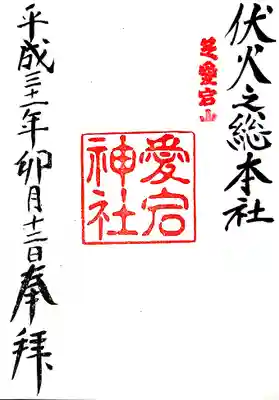 伏火之総本社
芝愛宕山
愛宕神社
平成三十一年卯月十二日奉拝